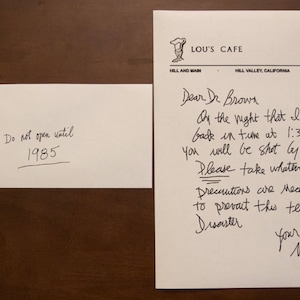 Do not open until
1985
LOU'S CAFE
HILL AND MAIN · HILL VALLEY, CALIFORNIA
Dear Dr. Brown
On the night that I
back in time at 1:3
you will be shot by
Please take whatev
precautions are nece
to prevent this te
Disaster
Your